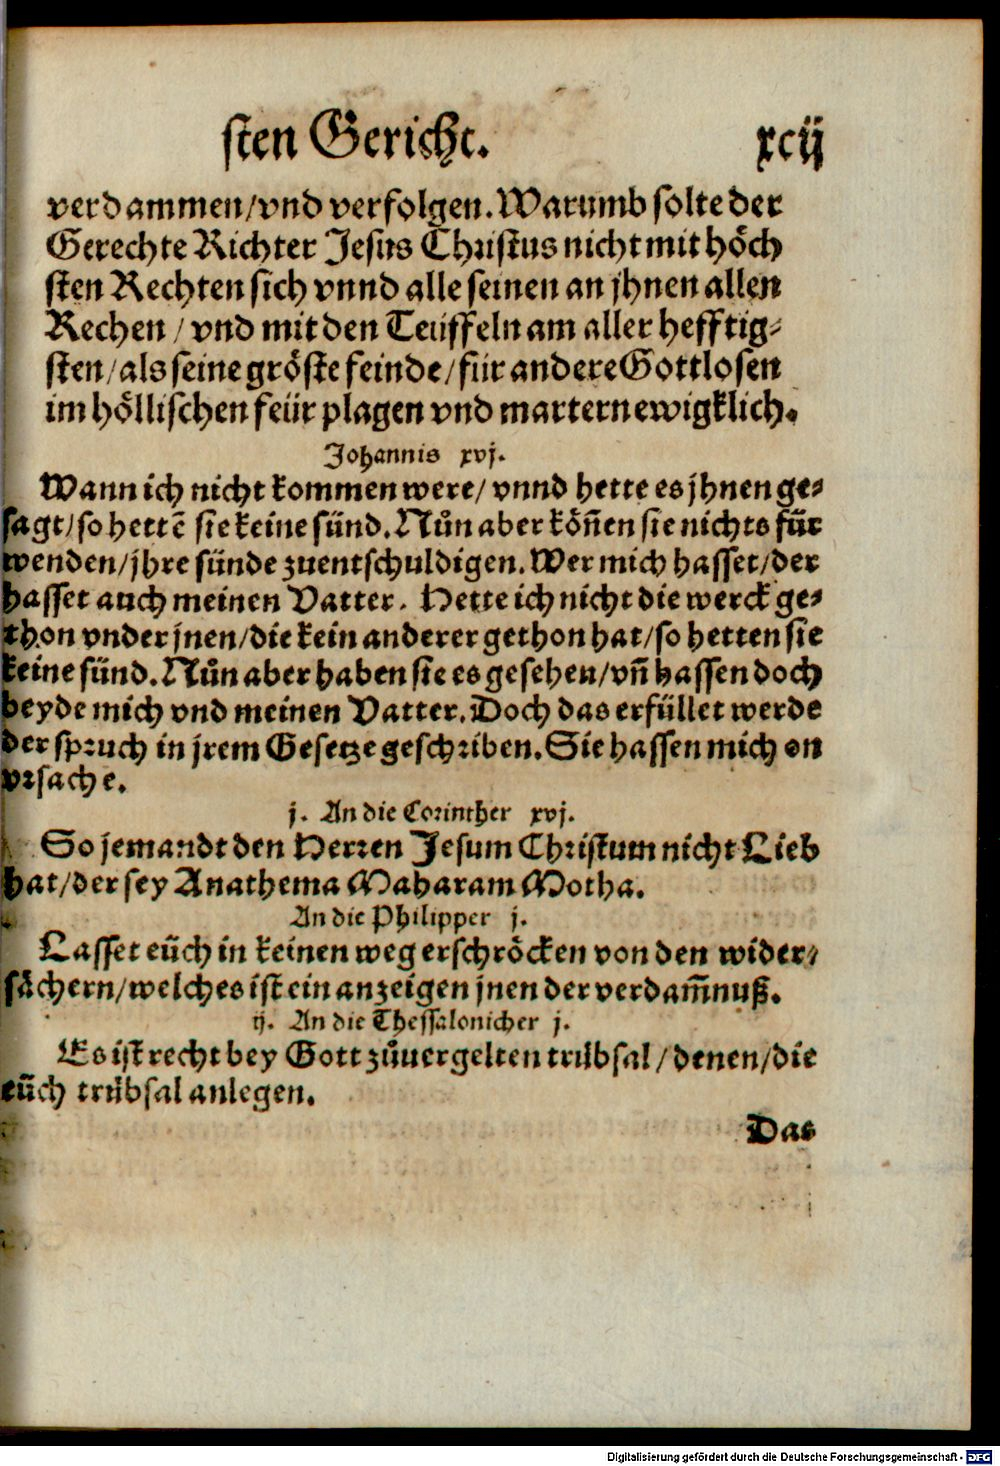 sten Gericht. xcij
verdammen/vnd verfolgen. Warumb solte der
Gerechte Richter Jesus Christus nicht mit höch
sten Rechten sich vnnd alle seinen an jhnen allen
Rechen / vnd mit den Teüffeln am aller hefftig⸗
sten/als seine gröste feinde/für andere Gottlosen
im höllischen feür plagen vnd martern ewigklich.
Johannis xvj.
Wann ich nicht kommen were/ vnnd hette es jhnen ge⸗
sagt/so hettē sie keine sünd. Nůn aber köñen sie nichts für
wenden/jhre sünde zuentschuldigen. Wer mich hasset/der
hasset auch meinen Vatter. Hette ich nicht die werck ge⸗
thon vnder jnen/die kein anderer gethon hat/so hetten sie
keine sünd. Nůn aber haben sie es gesehen/vñ hassen doch
beyde mich vnd meinen Vatter. Doch das erfüllet werde
der spruch in jrem Gesetze geschriben. Sie hassen mich on
vrsache.
j. An die Corinther xvj.
So jemandt den Herren Jesum Christum nicht Lieb
hat/der sey Anathema Maharam Motha.
An die Philipper j.
Lasset eüch in keinen weg erschröcken von den wider⸗
sächern/welches ist ein anzeigen jnen der verdam̄nuß.
ij. An die Thessalonicher j.
Es ist recht bey Gott zůuergelten trübsal/denen/die
eüch trübsal anlegen.
Das
Digitalisierung gefördert durch die Deutsche Forschungsgemeinschaft - DFG